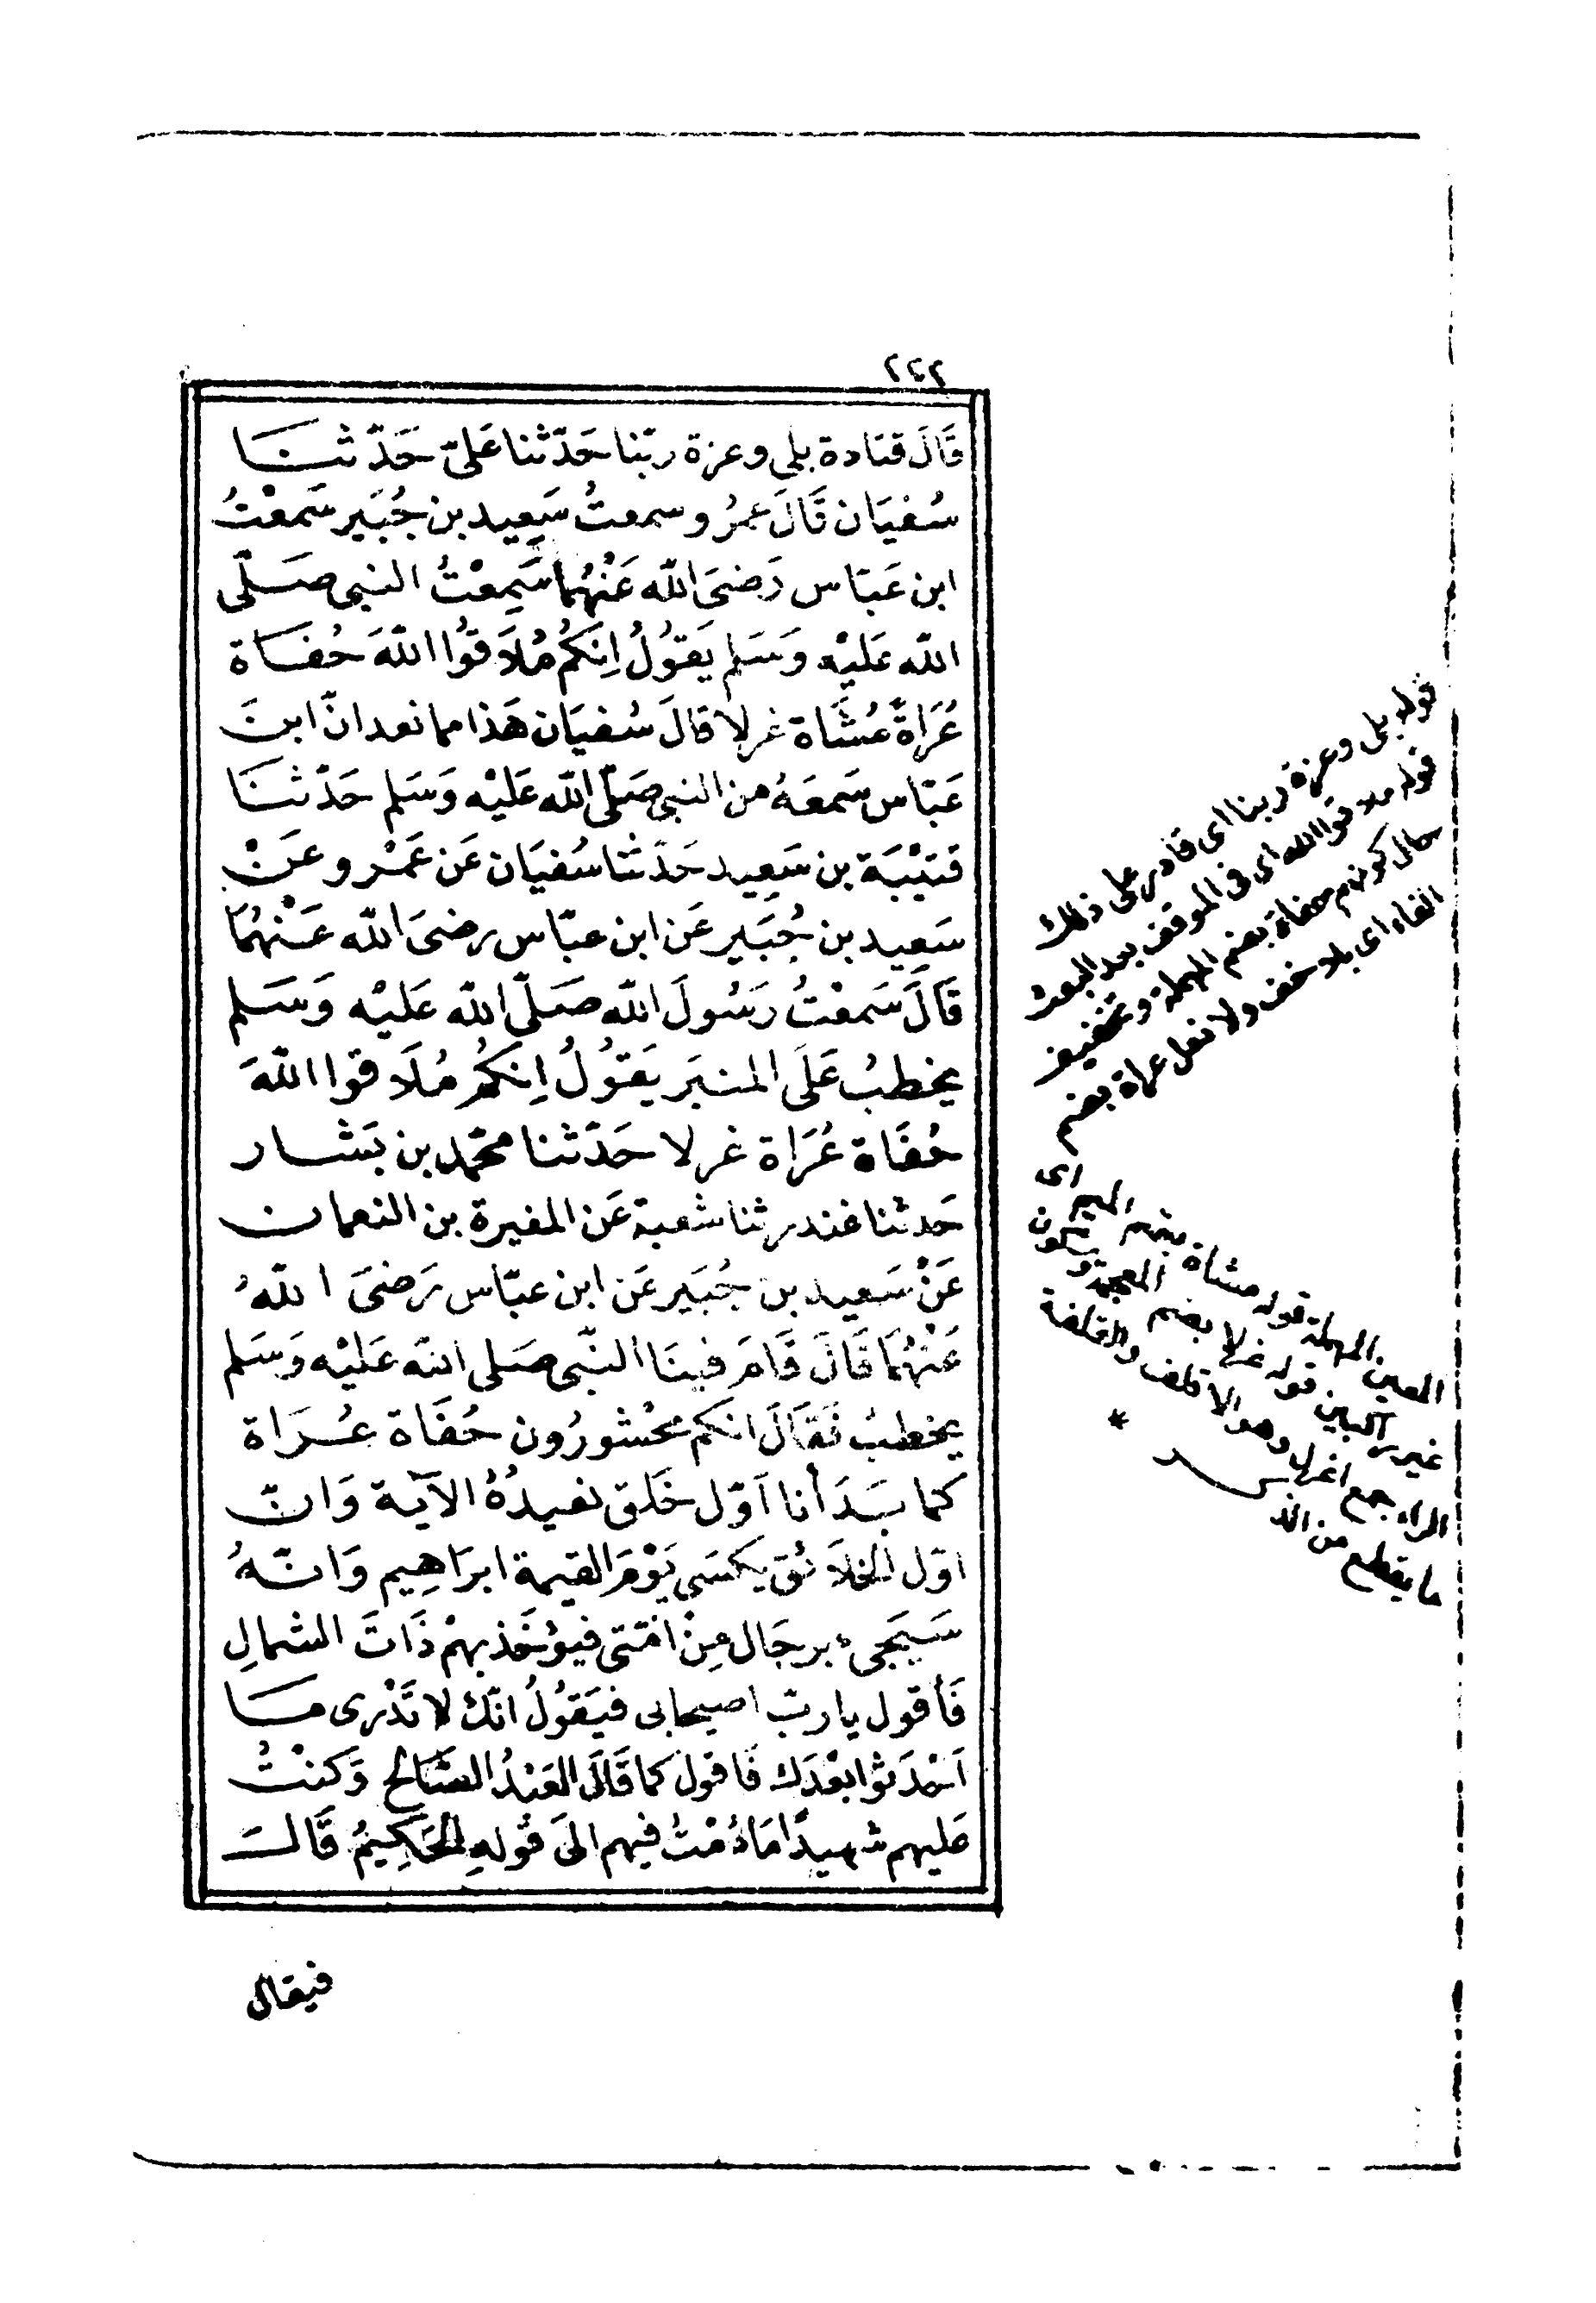 ٢٤٢
قَالَ قتادة بلى وعزة ربّنا حَدّثنا عَلىّ حَدّثنَا
سُفيَان قَالَ عمرُو سمعتُ سَعِيد بن جُبَير سَمعْتُ
ابن عَبّاس رَضىَ الله عَنْهُمَا سَمِعْتُ النبى صَلّى
الله عَليْه وَسَلم يَقوُلُ اِنكُمْ مُلَاقوُا اللهَ حُفَاة
عُرَاةً مُشَاة غرلا قالَ سُفيَان هَذا مما نعد انّ ابنَ
عَبّاس سَمعَهُ من النبى صَلّى الله عَليْه وَسَلم حَدّثنَا
قتَيْبَة بن سَعِيد حَدّثنا سُفيَان عَن عَمْرو عَنْ
سَعِيد بن جُبَير عَن ابن عبّاس رضىَ الله عَنْهُمَا
قَالَ سَمعْتُ رَسُولَ الله صَلّى الله عَليْه وَسَلم
يخطبُ عَلَى المنبَر يَقوُلُ اِنكُمْ مُلَاقوا اللهَ
حُفَاة عُرَاة غرلا حَدّثنا محمّد بن بَشار
حَدثنا غندر ثنا شعبة عَن المغيرة بن النعمان
عَنْ سَعِيد بن جُبَير عَن ابن عبّاس رَضىَ اللهُ
عَنْهُمَا قَالَ قَامَ فينَا النّبى صَلى الله عَليْه وَسَلم
يخطبُ فَقَالَ انكم محْشورُون حُفَاة عُرَاة
كما بَدَأنا أوّل خَلق نعيدُهُ الآية وَانّ
اوّل الخلَائق يكسَى يَوْمَ القيمة ابرَاهِيم وَانّهُ
سَيَجىء برجَال مِنْ امّتى فيؤخَذ بهمْ ذَاتَ الشمالِ
فَأقول يا ربّ اصيحابى فيَقوُلُ انّك لا تَدْرى مَا
اَحْدَثوا بعْدَك فَاقول كما قَالَ العَبْدُ الصَّالح وَكنْتُ
عَليهم شهيدًا مَا دُمْتُ فيهم الىَ قوْلهِ الحَكِيمُ قَالَ
فيقال
قوله بلى وعزة ربنا اى قادر على ذلك
قوله ملاقوا الله اى فى الموقف بعد البعث
حال كونهم حفاة بضم المهملة وتخفيف
الفاء اى بلا خف ولا نعل عراة بضم
العين المهملة قوله مشاة بضم الميم اى
غير راكبين قوله غرلا بضم المعجمة وسكون
الراء جمع اغرل وهو الاقلف والقلفة
ما يقطع من
*